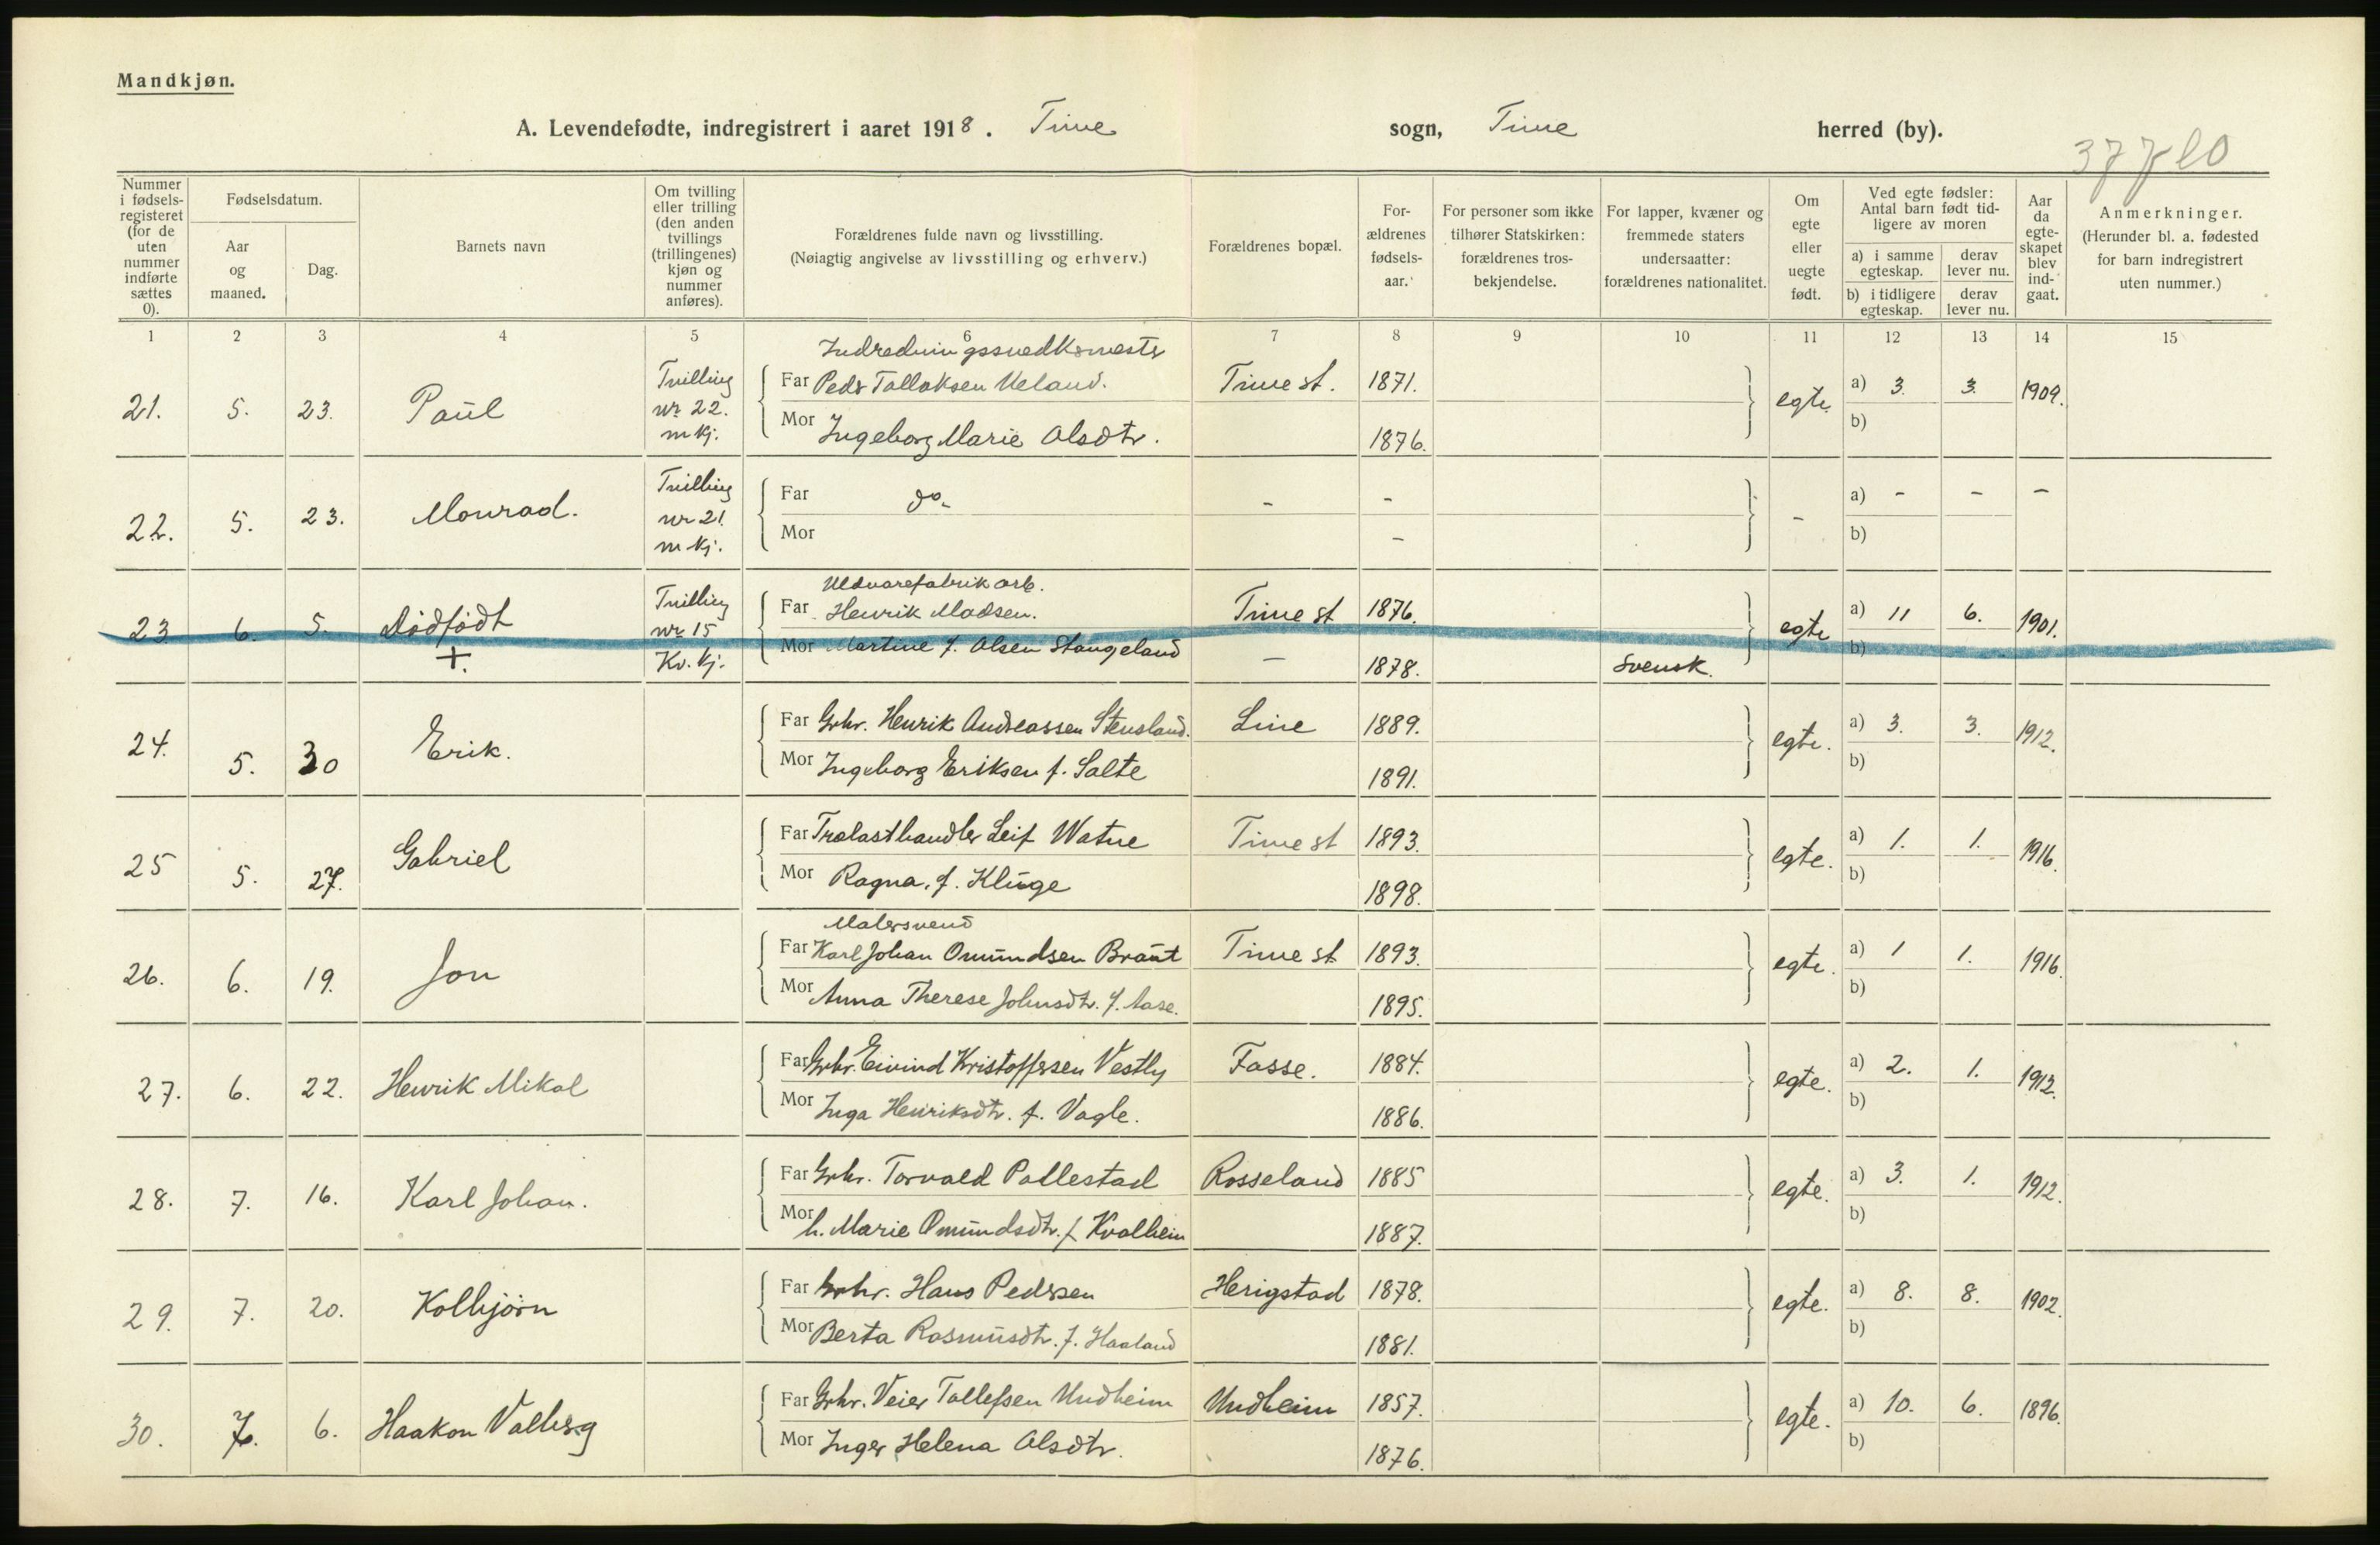 Mandkjøn.
A. Levendefødte, indregistrert i aaret 1918. Time sogn, Time herred (by).
37720
Nummer i fødselsregisteret (for de uten nummer indførte sættes 0).
Fødselsdatum.
Aar og maaned.
Dag.
Barnets navn
Om tvilling eller trilling (den anden tvillings (trillingenes) kjøn og nummer anføres).
Forældrenes fulde navn og livsstilling.
(Nøiagtig angivelse av livsstilling og erhverv.)
Forældrenes bopæl.
Forældrenes fødselsaar.
For personer som ikke tilhører Statskirken: forældrenes trosbekjendelse.
For lapper, kvæner og fremmede staters undersaatter: forældrenes nationalitet.
Om egte eller uegte født.
Ved egte fødsler: Antal barn født tidligere av moren
a) i samme egteskap.
derav lever nu.
b) i tidligere egteskap.
derav lever nu.
Aar da egteskapet blev indgaat.
Anmerkninger.
(Herunder bl. a. fødested for barn indregistrert uten nummer.)
1 2 3 4 5 6 7 8 9 10 11 12 13 14 15
Indredningssnedkermester
21. 5. 23. Paul Tvilling nr. 22. m kj. Far Peder Tollaksen Ueland. Time st. 1871. egte. a) 3. 3. 1909.
Mor Ingeborg Marie Olsdtr. 1876. b)
22. 5. 23. Monrad. Tvilling nr 21. m kj. Far do. - - - a) - - -
Mor - b)
Uldvarefabrik arb.
23. 6. 5. Dödfödt +. Tvilling nr. 15 Kv. kj. Far Henrik Madsen. Time st 1876. egte a) 11 6. 1901.
Mor Martine f. Olsen Stangeland - 1878. Svensk. b)
24. 5. 30 Erik. Far Grbr. Henrik Andreassen Stensland. Line 1889. egte. a) 3. 3. 1912.
Mor Ingeborg Eriksen f. Salte 1891. b)
25 5. 27. Gabriel Far Trælasthandler Leif Watne Time st 1893. egte. a) 1. 1. 1916.
Mor Ragna, f. Kluge 1898. b)
Malersvend
26. 6. 19. Jon Far Karl Johan Omundsen Braut Time st 1893. egte. a) 1 1. 1916.
Mor Anna Therese Johnsdtr. f. Aase. 1895. b)
27. 6. 22. Henrik Mikal Far Grbr. Eivind Kristoffersen Vestly Fosse. 1884. egte. a) 2. 1. 1912.
Mor Inga Henriksdtr. f. Vagle. 1886. b)
28. 7. 16. Karl Johan. Far Grbr. Torvald Pollestad Rosseland 1885 egte. a) 3. 1. 1912.
Mor h. Marie Omundsdtr. f Kvalheim 1887. b)
29. 7. 20. Kolbjörn Far Grbr. Hans Pedersen Herigstad 1878. egte. a) 8. 8. 1902.
Mor Berta Rasmusdtr. f. Haaland 1881. b)
30. 7. 6. Haakon Valberg Far Grbr. Veier Tollefsen Undheim Undheim 1857. egte. a) 10. 6. 1896.
Mor Inger Helena Olsdtr. 1876. b)